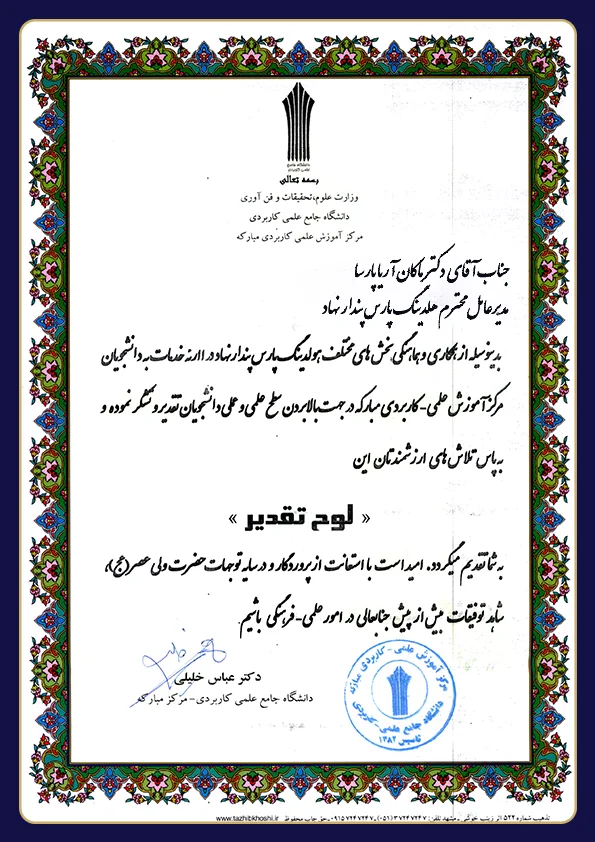 دانشگاه جامع
علمی کاربردی
بسمه تعالی
وزارت علوم،تحقیقات و فن آوری
دانشگاه جامع علمی کاربردی
مرکز آموزش علمی کاربردی مبارکه
جناب آقای دکتر ماکان آریا پارسا
مدیرعامل محترم هلدینگ پارس پندار نهاد
بدینوسیله از همکاری و هماهنگی بخش های مختلف هولدینگ پارس پندار نهاد در ارائه خدمات به دانشجویان
مرکز آموزش علمی - کاربردی مبارکه در جهت بالا بردن سطح علمی و عملی دانشجویان تقدیر و تشکر نموده و
به پاس تلاش های ارزشمندتان این
« لوح تقدیر »
به شما تقدیم میگردد. امید است با استعانت از پروردگار و در سایه توجهات حضرت ولی عصر(عج)،
شاهد توفیقات بیش از پیش جنابعالی در امور علمی - فرهنگی باشیم.
دکتر عباس خلیلی
دانشگاه جامع علمی کاربردی- مرکز مبارکه
مرکز آموزش علمی - کاربردی مبارکه
دانشگاه جامع علمی - کاربردی
تاسیس ۱۳۸۲
تذهیب شماره ۵۲۲ اثر زینب خوشی ـ مشهد تلفن: ۳۷۲۴۷۲۴۷ (۰۵۱) ـ ۰۹۱۵۷۲۴۷۲۴۷ ـ حق چاپ محفوظ www.tazhibkhoshi.ir